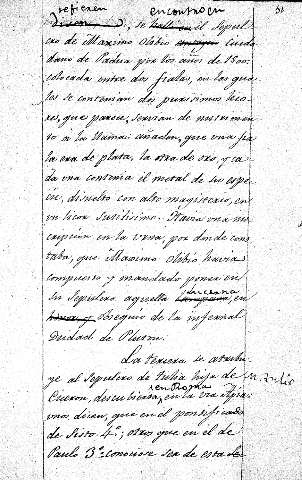 refieren encontró en 51
se halló en el sepulcro de Maximo Olibio Ciudadano de Padua por los años de 1500
colocada entre dos fialas, en las quales se contenian dos purisimos licores, que parece, servian de nutrimento à la llama: añadan, que una fiala era de plata, la otra de oro, y cada una contenia el metal de su especie, disuelto con alto magisterio, en un licor sutilisimo. Havia una inscripcion en la urna, por donde constaba, que Maximo Olibio havia compuesto y mandado poner en su sepulcro aquella lucerna en obsequio de la infernal Deidad de Pluton.
La tercera se atribuye al sepulcro de Tulia hija de M. Tulio
Ciceron, descubierto en Roma, en la via Apia:
unos dicen, que en el pontificado
de Sixto 4º; otros que en el de
Paulo 3º